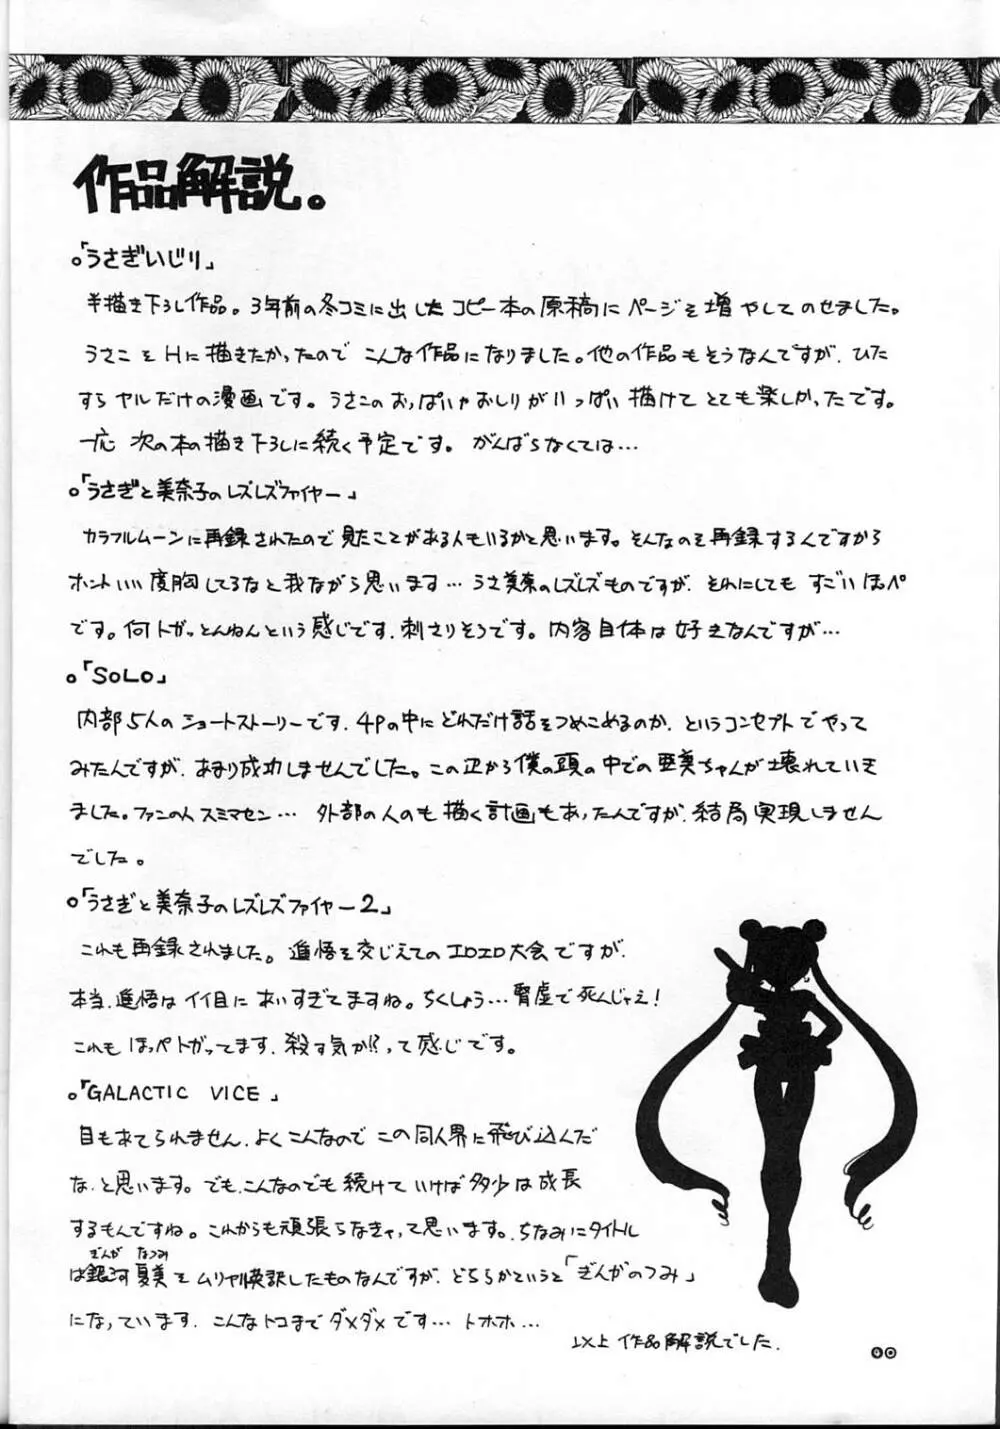 作品解説。
○「うさぎいじり」
半描き下ろし作品。3年前の冬コミに出したコピー本の原稿にページを増やしてのせました。
うさこをHに描きたかったのでこんな作品になりました。他の作品もそうなんですが、ひた
すらヤルだけの漫画です。うさこのおっぱいやおしりがいっぱい描けてとても楽しかったです。
一応次の本の描き下ろしに続く予定です。がんばらなくては…
○「うさぎと美奈子のレズレズファイヤー」
カラフルムーンに再録されたので見たことがある人もいるかと思います。そんなのを再録するんですから
ホントいい度胸してるなと我ながら思います…うさ美奈のレズレズものですが、それにしてもすごいほっぺ
です。何トガっとんねんという感じです、刺さりそうです。内容自体は好きなんですが…
○「SOLO」
内部5人のショートストーリーです、4Pの中にどれだけ話をつめこめるのか、というコンセプトでやって
みたんですが、あまり成功しませんでした。この辺から僕の頭の中での亜美ちゃんが壊れていき
ました。ファンの人スミマセン…外部の人のも描く計画もあったんですが、結局実現しません
でした。
○「うさぎと美奈子のレズレズファイヤー2」
これも再録されました。進悟を交じえてのエロエロ大会ですが、
本当、進悟はイイ目にあいすぎてますね。ちくしょう…腎虚で死んじゃえ!
これもほっぺトガってます、殺す気か!?って感じです。
○「GALACTIC VICE」
目もあてられません、よくこんなのでこの同人界に飛び込んだ
な、と思います。でも、こんなのでも続けていけば多少は成長
するもんですね。これからも頑張らなきゃって思います。ちなみにタイトル
ぎんが なつみ
は銀河夏美をムリヤリ英訳したものなんですが、どちらかというと「ぎんがのつみ」
になっています、こんなトコまでダメダメです…トホホ…
以上作品解説でした。